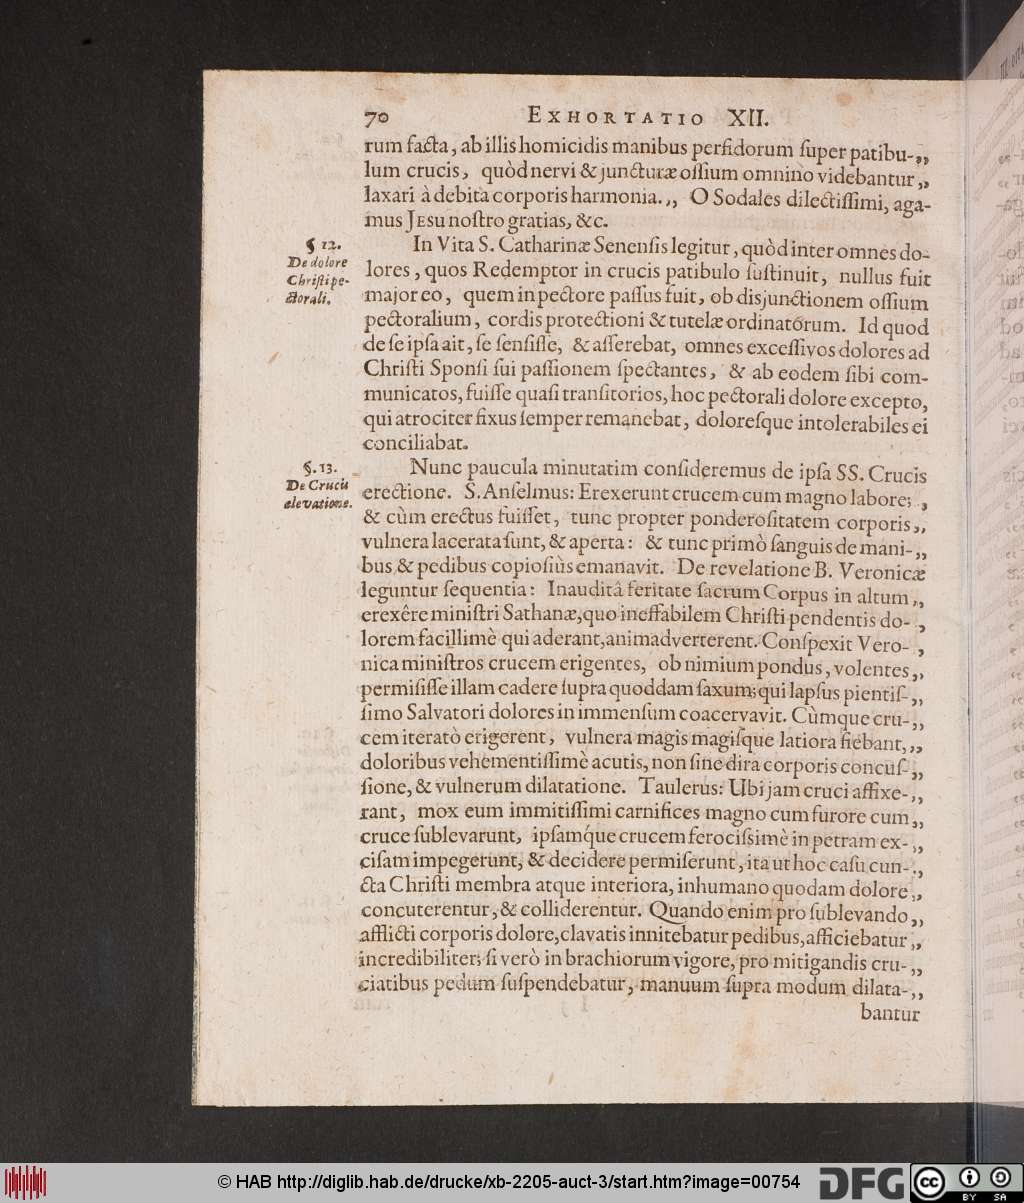 70 EXHORTATIO XII.
rum facta, ab illis homicidis manibus perfidorum ſuper patibu-„
lum crucis, quòd nervi & juncturæ oſſium omnino videbantur„
laxari à debita corporis harmonia.„ O Sodales dilectiſſimi, aga-
mus JESU noſtro gratias, &c.
§ 12.
De dolore
Chriſti pe-
ctorali.
In Vita S. Catharinæ Senenſis legitur, quòd inter omnes do-
lores, quos Redemptor in crucis patibulo ſuſtinuit, nullus fuit
major eo, quem in pectore paſſus fuit, ob disjunctionem oſſium
pectoralium, cordis protectioni & tutelæ ordinatórum. Id quod
de ſe ipſa ait, ſe ſenſiſſe, & aſſerebat, omnes exceſſivos dolores ad
Chriſti Sponſi ſui paſſionem ſpectantes, & ab eodem ſibi com-
municatos, fuiſſe quaſi tranſitorios, hoc pectorali dolore excepto,
qui atrociter fixus ſemper remanebat, doloreſque intolerabiles ei
conciliabat.
§. 13.
De Crucis
elevatione.
Nunc paucula minutatim conſideremus de ipſa SS. Crucis
erectione. S. Anſelmus: Erexerunt crucem cum magno labore; ,
& cùm erectus fuiſſet, tunc propter ponderoſitatem corporis„
vulnera lacerata ſunt, & aperta: & tunc primò ſanguis de mani-„
bus & pedibus copioſiùs emanavit. De revelatione B. Veronicæ
leguntur ſequentia: Inauditâ feritate ſacrum Corpus in altum„
erexêre miniſtri Sathanæ, quo ineffabilem Chriſti pendentis do- ,
lorem facillimè qui aderant, animadverterent. Conſpexit Vero- ,
nica miniſtros crucem erigentes, ob nimium pondus, volentes„
permiſiſſe illam cadere ſupra quoddam ſaxum; qui lapſus pientiſ-„
ſimo Salvatori dolores in immenſum coacervavit. Cùmque cru-„
cem iteratò erigerent, vulnera magis magiſque latiora fiebant,„
doloribus vehementiſſimè acutis, non ſine dira corporis concuſ-„
ſione, & vulnerum dilatatione. Taulerus: Ubi jam cruci affixe-„
rant, mox eum immitiſſimi carnifices magno cum furore cum„
cruce ſublevarunt, ipſamq́ue crucem ferociſsimè in petram ex-„
ciſam impegerunt, & decidere permiſerunt, ita ut hoc caſu cun-„
cta Chriſti membra atque interiora, inhumano quodam dolore„
concuterentur, & colliderentur. Quando enim pro ſublevando„
afflicti corporis dolore, clavatis innitebatur pedibus, afficiebatur„
incredibiliter; ſi verò in brachiorum vigore, pro mitigandis cru-„
ciatibus pedum ſuſpendebatur, manuum ſupra modum dilata-„
bantur
© HAB http://diglib.hab.de/drucke/xb-2205-auct-3/start.htm?image=00754
DFG
cc BY SA